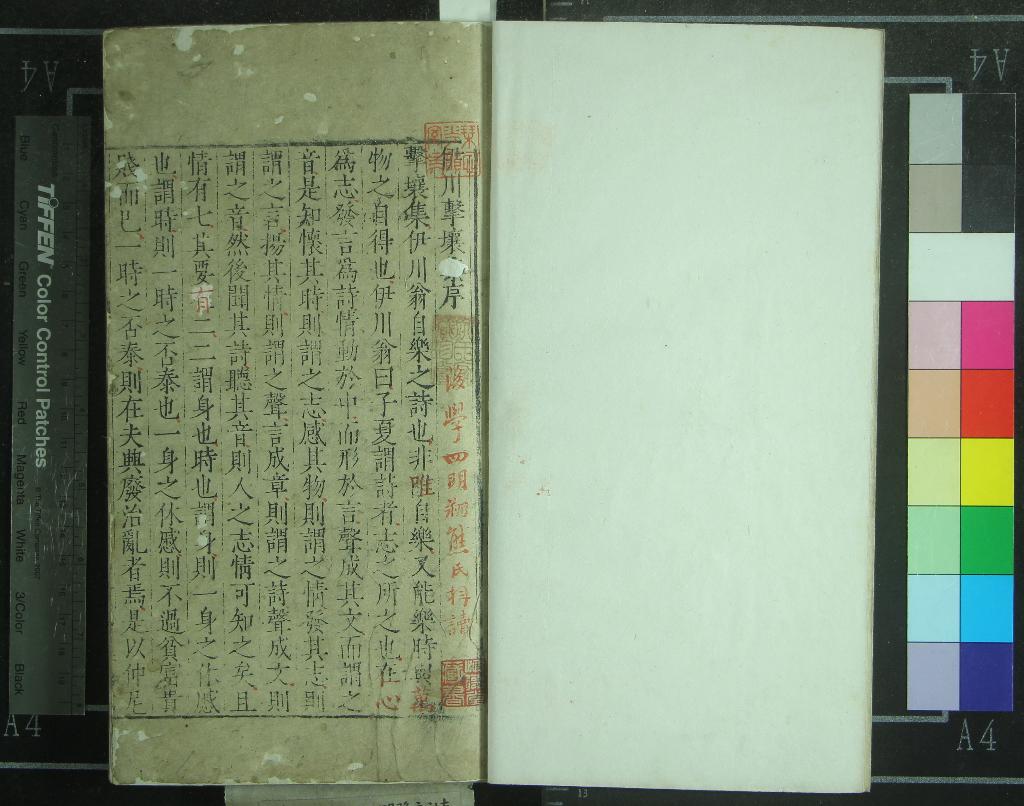 伊川擊壤集序
後學四明 熊氏 讀
擊壤集伊川翁自樂之詩也非唯自樂又能樂時與萬
物之自得也伊川翁曰子夏謂詩者志之所之也在心
為志發言為詩情動於中而形於言聲成其文而謂之
音是知懷其時則謂之志感其物則謂之情發其志則
謂之言揚其情則謂之聲言成章則謂之詩聲成文則
謂之音然後聞其詩聽其音則人之志情可知之矣且
情有七其要有二二謂身也時也謂身則一身之休慼
也謂時則一時之否泰也一身之休慼則不過貧富貴
賤而已一時之否泰則在夫興廢治亂者焉是以仲尼
A4
A4
A4
A4
TIFFEN Color Control Patches
Blue
Cyan
Green
Yellow
Red
Magenta
White
3/Color
Black
13